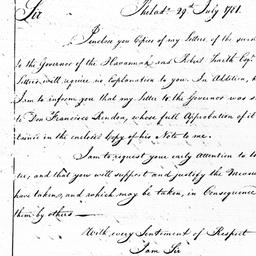 Sir Philada 29th July 1781.
I inclose you Copies of my Letters of the
to the Governor of the Havannah and Robert Smith Esqr
Letters will require no Explanation to you. In Addition,
I am to inform you that my letter to the Governor was
to Don Francisco Rendon, whose full Approbation of it
in the enclosed Copy of his Note to me.
I am to request your early Attention to
and that you will support and justify the Measures
have taken, and which may be taken, in Consequence
them by others
With every Sentiment of Respect
I am Sir